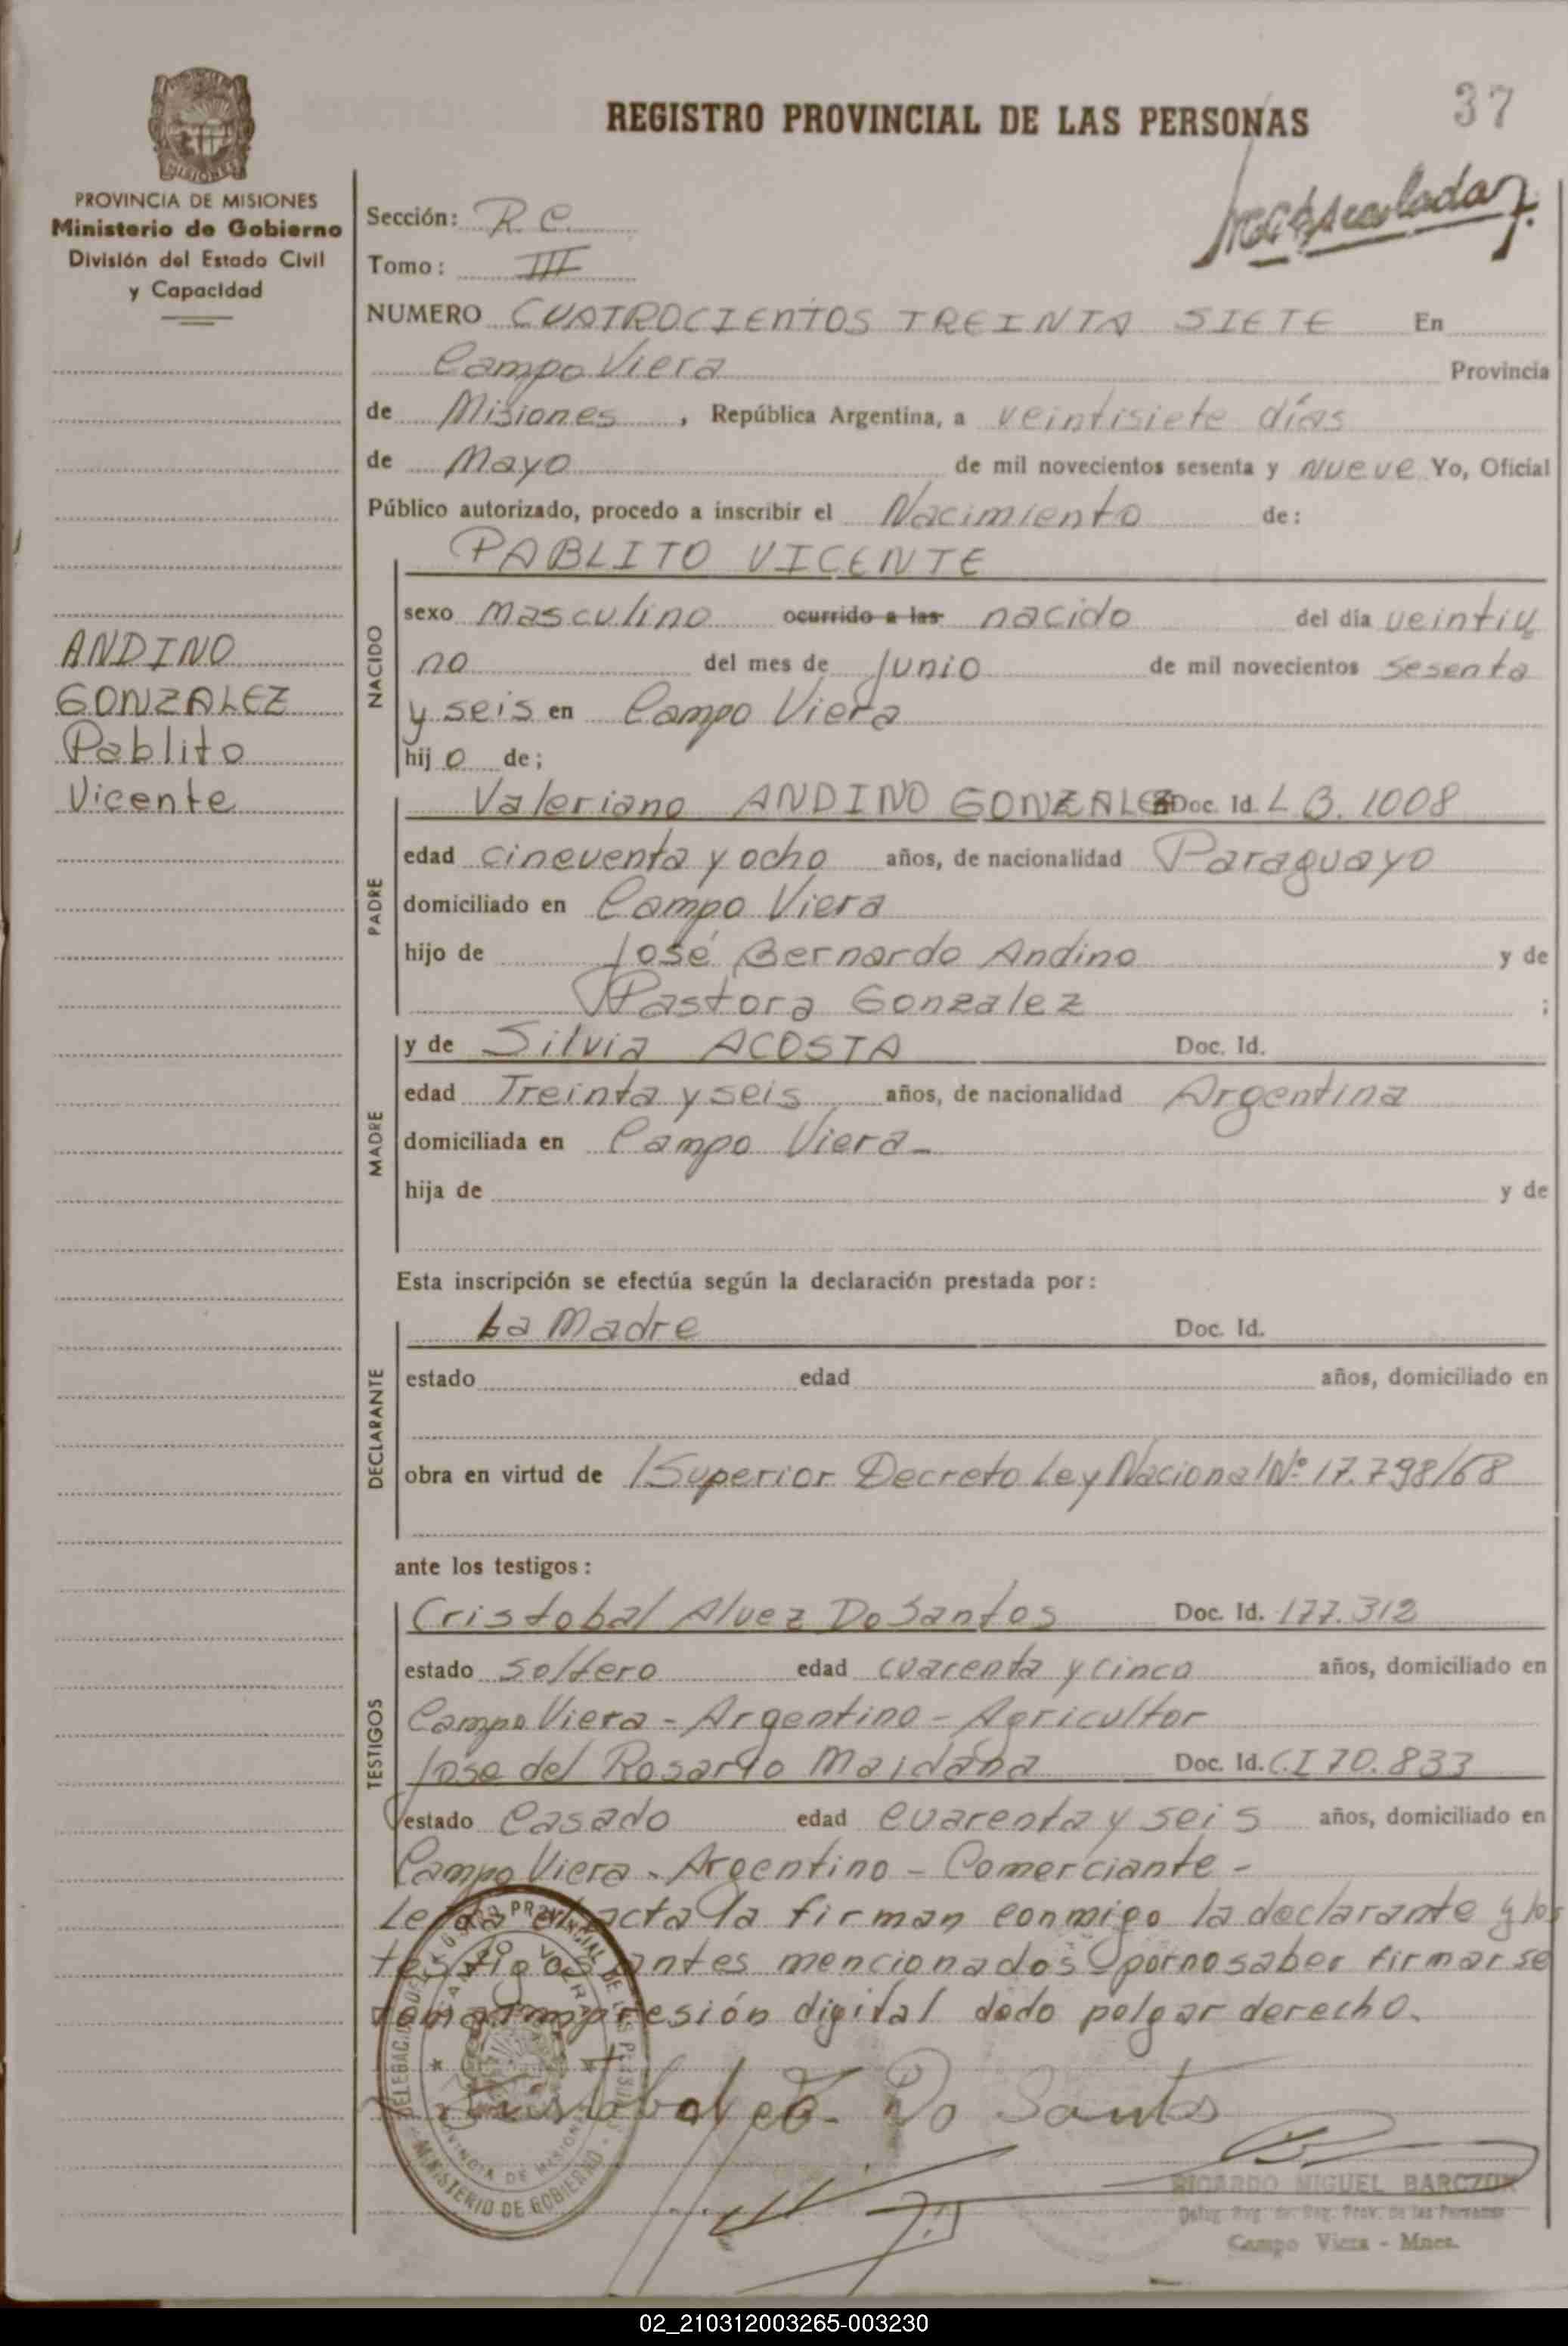 REGISTRO PROVINCIAL DE LAS PERSONAS
37
MISIONES
PROVINCIA DE MISIONES
Ministerio de Gobierno
División del Estado Civil
y Capacidad
Sección: R.C.
Tomo: III
NUMERO CUATROCIENTOS TREINTA SIETE En
Campo Viera Provincia
de Misiones, República Argentina, a veintisiete días
de Mayo de mil novecientos sesenta y NUEVE Yo, Oficial
Público autorizado, procedo a inscribir el Nacimiento de:
ANDINO
GONZALEZ
Pablito
Vicente
NACIDO
PABLITO VICENTE
sexo masculino ocurrido a las nacido del día veintiu
no del mes de Junio de mil novecientos sesenta
y seis en Campo Viera
hij o de;
PADRE
Valeriano ANDINO GONZALEZ Doc. Id. L B. 1008
edad cincuenta y ocho años, de nacionalidad Paraguayo
domiciliado en Campo Viera
hijo de José Bernardo Andino y de
Pastora Gonzalez ;
MADRE
y de Silvia ACOSTA Doc. Id.
edad Treinta y seis años, de nacionalidad Argentina
domiciliada en Campo Viera
hija de y de
Esta inscripción se efectúa según la declaración prestada por:
DECLARANTE
La Madre Doc. Id.
estado edad años, domiciliado en
obra en virtud de Superior Decreto Ley Nacional Nº 17.798/68
ante los testigos:
TESTIGOS
Cristobal Alvez Do Santos Doc. Id. 177.312
estado soltero edad cuarenta y cinco años, domiciliado en
Campo Viera - Argentino - Agricultor
Jose del Rosario Maidana Doc. Id. C.I 70.833
estado Casado edad cuarenta y seis años, domiciliado en
Campo Viera - Argentino - Comerciante -
Leida el acta la firman conmigo la declarante y los
testigos antes mencionados por no saber firmar se
toma impresión digital dedo pulgar derecho.
Do Santos
RICARDO MIGUEL BARCZUK
Deleg. Reg. de Reg. Prov. de las Personas
Campo Viera - Mnes.
MINISTERIO DE GOBIERNO
02_210312003265-003230